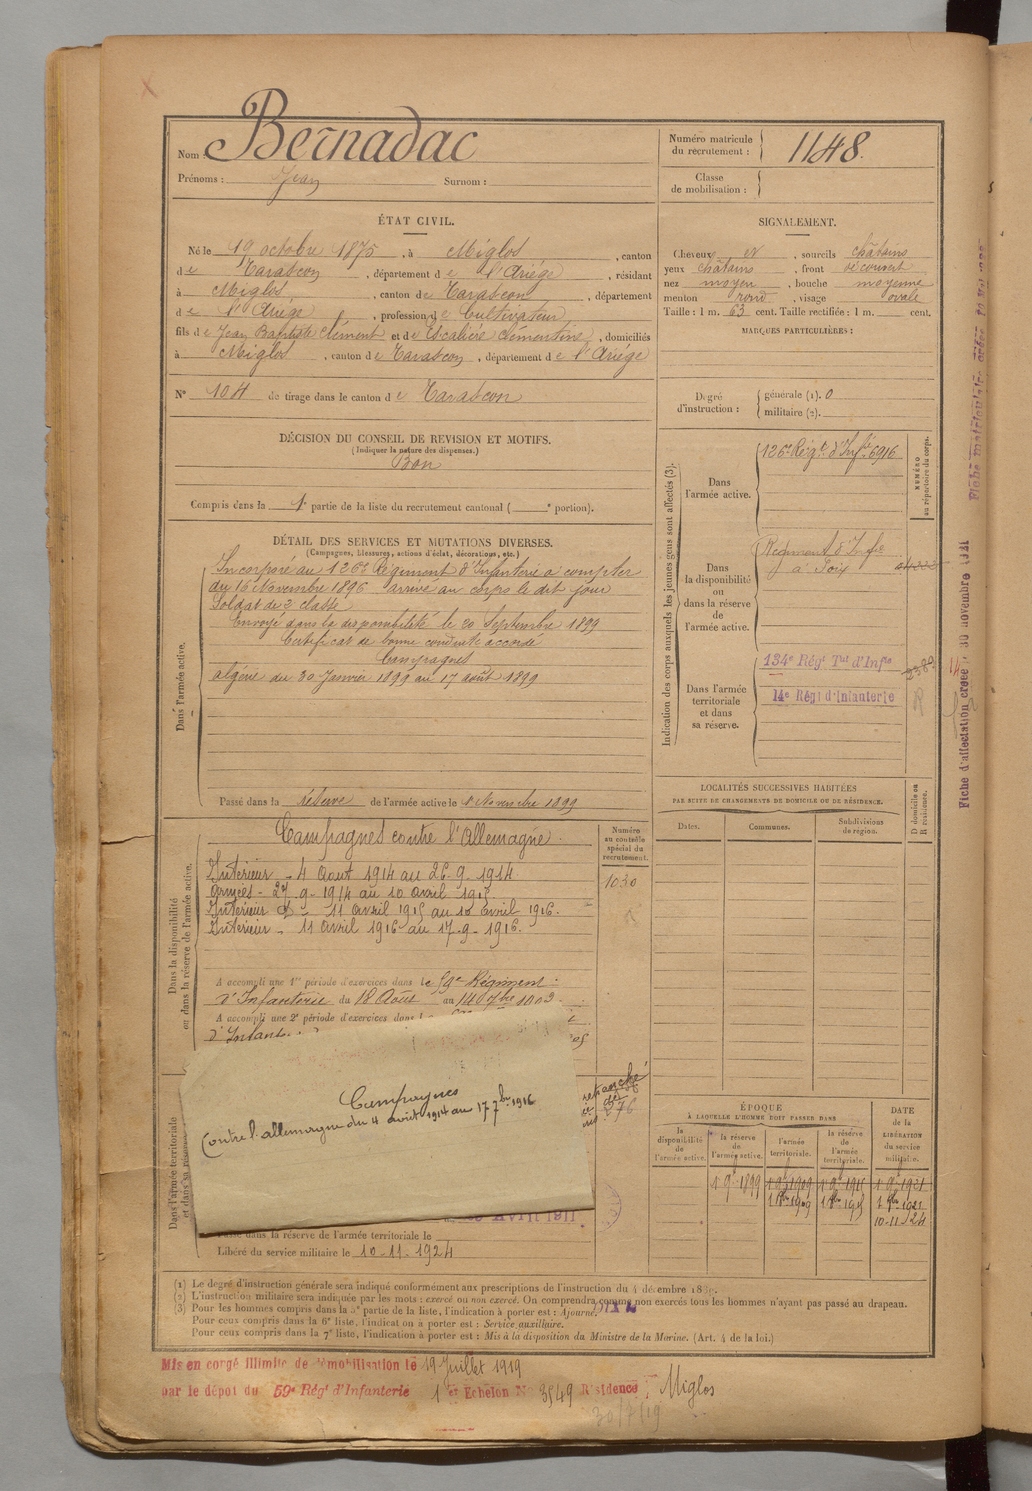 Nom : Bernadac
Prénoms : Jean Surnom :
Numéro matricule du recrutement : 1148.
Classe de mobilisation :
ÉTAT CIVIL.
Né le 19 octobre 1875, à Miglos, canton
de Tarascon, département de l'Ariége, résidant
à Miglos, canton de Tarascon, département
de l'Ariége, profession de Cultivateur
fils de Jean Baptiste Clément et de Escalière Clémentine, domiciliés
à Miglos, canton de Tarascon, département de l'Ariége
N° 104 de tirage dans le canton de Tarascon
SIGNALEMENT.
Cheveux et, sourcils châtains
yeux châtains, front découvert
nez moyen, bouche moyenne
menton rond, visage ovale
Taille : 1 m. 63 cent. Taille rectifiée : 1 m. cent.
MARQUES PARTICULIÈRES :
Degré d'instruction : générale (1). 0
militaire (2).
DÉCISION DU CONSEIL DE REVISION ET MOTIFS.
(Indiquer la nature des dispenses.)
Bon
Compris dans la 1e partie de la liste du recrutement cantonal ( e portion).
DÉTAIL DES SERVICES ET MUTATIONS DIVERSES.
(Campagnes, blessures, actions d'éclat, décorations, etc.)
Dans l'armée active.
Incorporé au 126e Régiment d'Infanterie à compter
du 16 Novembre 1896 arrivé au corps le dit jour
Soldat de 2e classe
Envoyé dans la disponibilité le 20 Septembre 1899
Certificat de bonne conduite accordé
Campagnes
Algérie du 30 Janvier 1899 au 17 août 1899
Passé dans la réserve de l'armée active le 1er Novembre 1899
Indication des corps auxquels les jeunes gens sont affectés (3).
NUMÉRO au répertoire du corps.
Dans l'armée active.
126e Régt d'Infie 6916
Dans la disponibilité ou dans la réserve de l'armée active.
Régiment d'Infie
à Foix
Dans l'armée territoriale et dans sa réserve.
134e Régt Tal d'Infie
14e Régt d'Infanterie
Fiche d'affectation créée 30 novembre 1921
LOCALITÉS SUCCESSIVES HABITÉES
PAR SUITE DE CHANGEMENTS DE DOMICILE OU DE RÉSIDENCE.
Dates. Communes. Subdivisions de région. D domicile ou R résidence.
Dans la disponibilité ou dans la réserve de l'armée active.
Numéro au contrôle spécial du recrutement.
1030
Campagnes contre l'Allemagne.
Intérieur - 4 Aout 1914 au 26.9-1914.
Armées - 27.9-1914 au 10 avril 1915
Intérieur - 11 avril 1915 au 10 avril 1916.
Intérieur - 11 avril 1916 au 17.9-1916.
A accompli une 1re période d'exercices dans le 59e Régiment
d'Infanterie du 18 Août au 14 7bre 1903.
A accompli une 2e période d'exercices dans l
d'Infant
Campagnes
Contre l'allemagne du 4 août 1914 au 17 7bre 1916
Dans l'armée territoriale et dans sa réserve
Avril 1911
Passé dans la réserve de l'armée territoriale le
Libéré du service militaire le 10-11-1924
ÉPOQUE
À LAQUELLE L'HOMME DOIT PASSER DANS
DATE de la LIBÉRATION du service militaire.
la disponibilité de l'armée active. la réserve de l'armée active. l'armée territoriale. la réserve de l'armée territoriale.
10-11-24
(1) Le degré d'instruction générale sera indiqué conformément aux prescriptions de l'instruction du 4 décembre 1889.
(2) L'instruction militaire sera indiquée par les mots : exercé ou non exercé. On comprendra comme non exercés tous les hommes n'ayant pas passé au drapeau.
(3) Pour les hommes compris dans la 5e partie de la liste, l'indication à porter est : Ajourné.
Pour ceux compris dans la 6e liste, l'indication à porter est : Service auxiliaire.
Pour ceux compris dans la 7e liste, l'indication à porter est : Mis à la disposition du Ministre de la Marine. (Art. 4 de la loi.)
Mis en congé illimité de démobilisation le 19 Juillet 1919
par le dépôt du 59e Régt d'Infanterie 1er Echelon N° 3549 Résidence Miglos
30/7/19